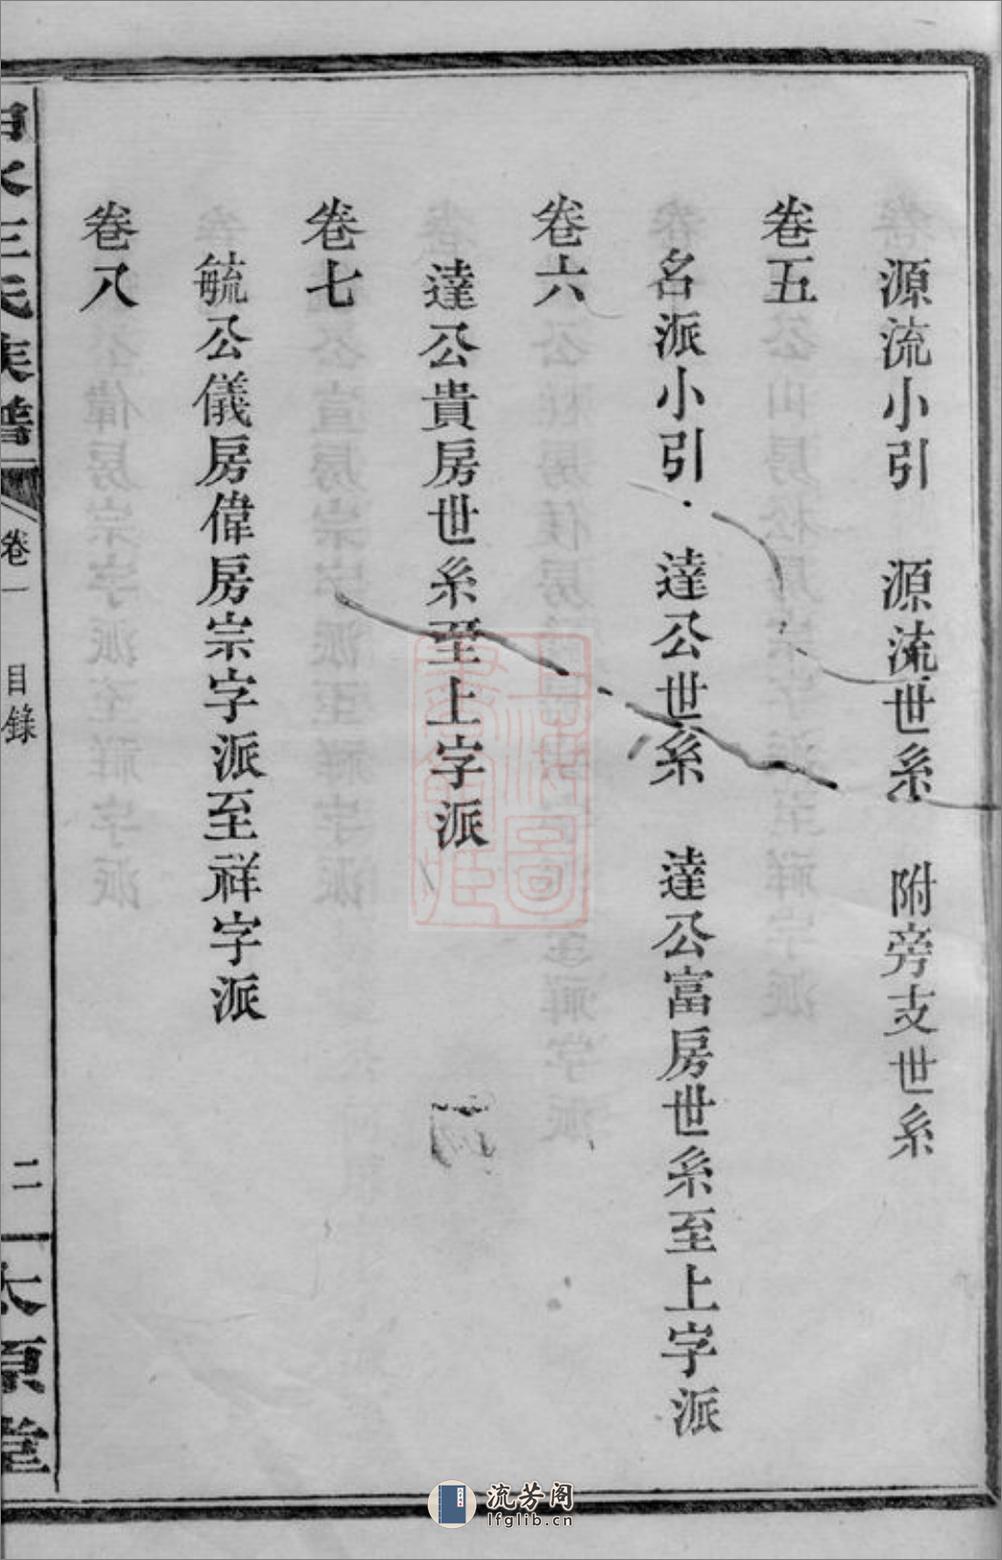 源流小引　源流世系　附旁支世系
卷五
名派小引　達公世系　達公富房世系至上字派
卷六
達公貴房世系至上字派
卷七
毓公儀房偉房宗字派至祥字派
卷八
水王氏族譜
卷一
目錄
二
太原堂
上海圖書館藏
流芳阁
lfglib.cn